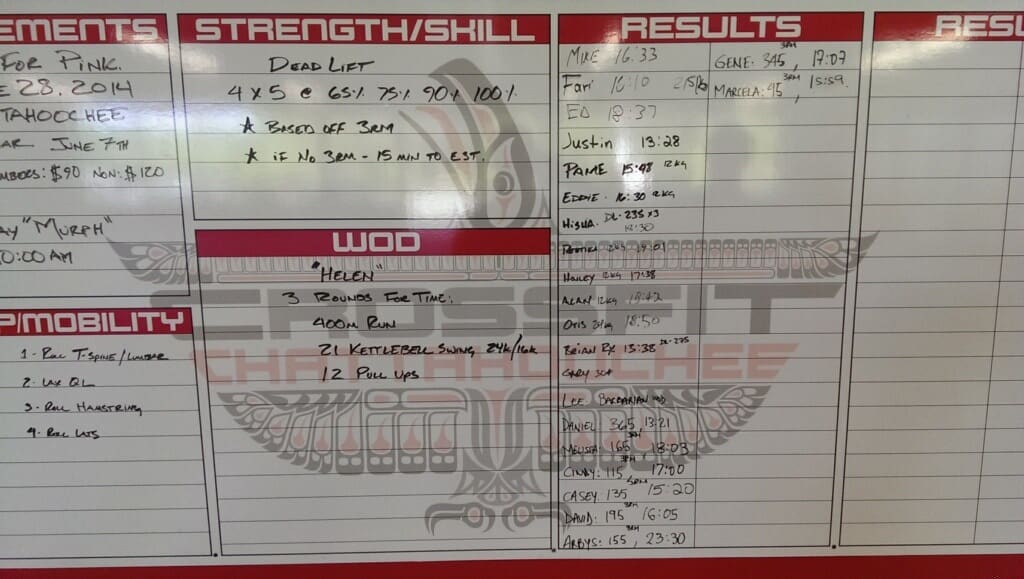 EMENTS
FOR PINK.
E 28. 2014
TAHOOCHEE
AR JUNE 7TH
MBERS: $90 NON: $120
AY "MURPH"
0:00 AM
P/MOBILITY
1- ROLL T-SPINE/LUMBAR
2- LAX QL
3- ROLL HAMSTRING
4- ROLL LATS
STRENGTH/SKILL
DEAD LIFT
4 x 5 @ 65% 75% 90% 100%
★ BASED OFF 3RM
★ IF NO 3RM - 15 MIN TO EST.
WOD
"HELEN"
3 ROUNDS FOR TIME:
400M RUN
21 KETTLEBELL SWING 24K/16K
12 PULL UPS
CROSSFIT
CHATTAHOOCHEE
RESULTS
MIKE 16:33
Fari 16:10 215lb
ED 18:37
Justin 13:28
PAME 15:48 12KG
EDDIE - 16:30 12KG
DL-235 x3
18:30
HAILEY 12KG 17:38
ALAN 12KG 18:42
OTIS 24kg 18:50
BRIAN RX 13:38 DL-275
GARY
LEE BARBARIAN
DANIEL 365, 13:21
MELISSA 165 3RM, 18:03
CINDY: 115 3RM, 17:00
CASEY: 135 15:20
DAVID: 195 16:05
ARBYS: 155 3RM, 23:30
GENE: 345 3RM, 17:07
MARCELA: 95 3RM, 15:59.
RESU